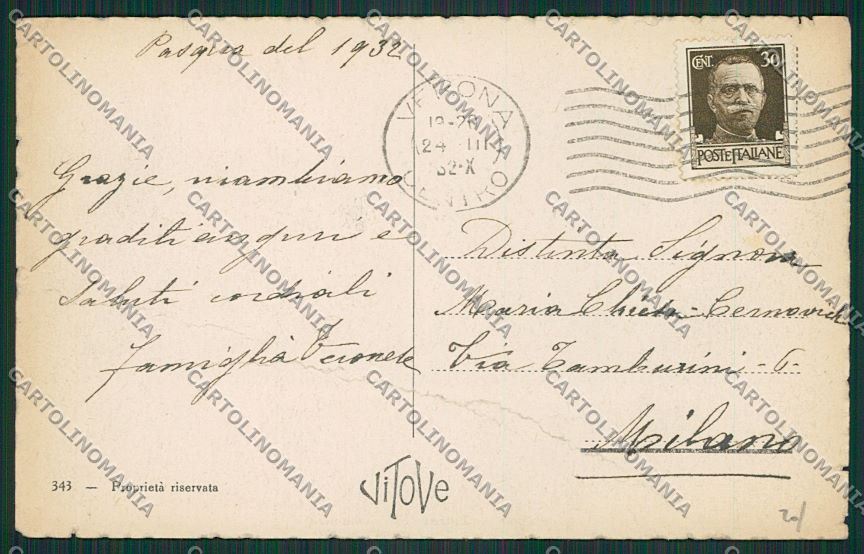 Pasqua del 1932
Grazie, riambiamo
graditi auguri e
saluti cordiali
famiglia Veronese
343 — Proprietà riservata
ViToVe
VERONA
24 III
32-X
CENTRO
CENT. 30
POSTE ITALIANE
Distinta Signora
Maria Cernovich
Via Tamburini - 6 -
Milano
CARTOLINOMANIA